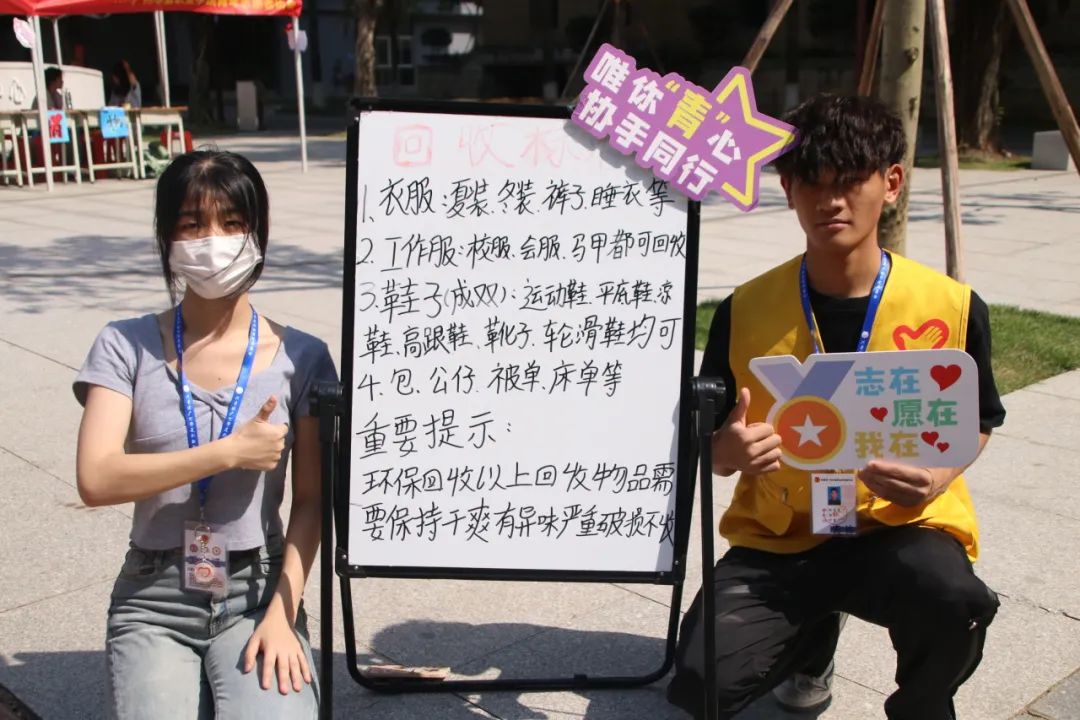 唯你“青”心
协手同行
回收标
1、衣服:夏装、冬装、裤子、睡衣等
2、工作服:校服、会服、马甲都可回收
3、鞋子(成双):运动鞋、平底鞋、凉
鞋、高跟鞋、靴子、轮滑鞋均可
4、包、公仔、被单、床单等
重要提示:
环保回收以上回收物品需
要保持干爽有异味严重破损不收
志在
愿在
我在